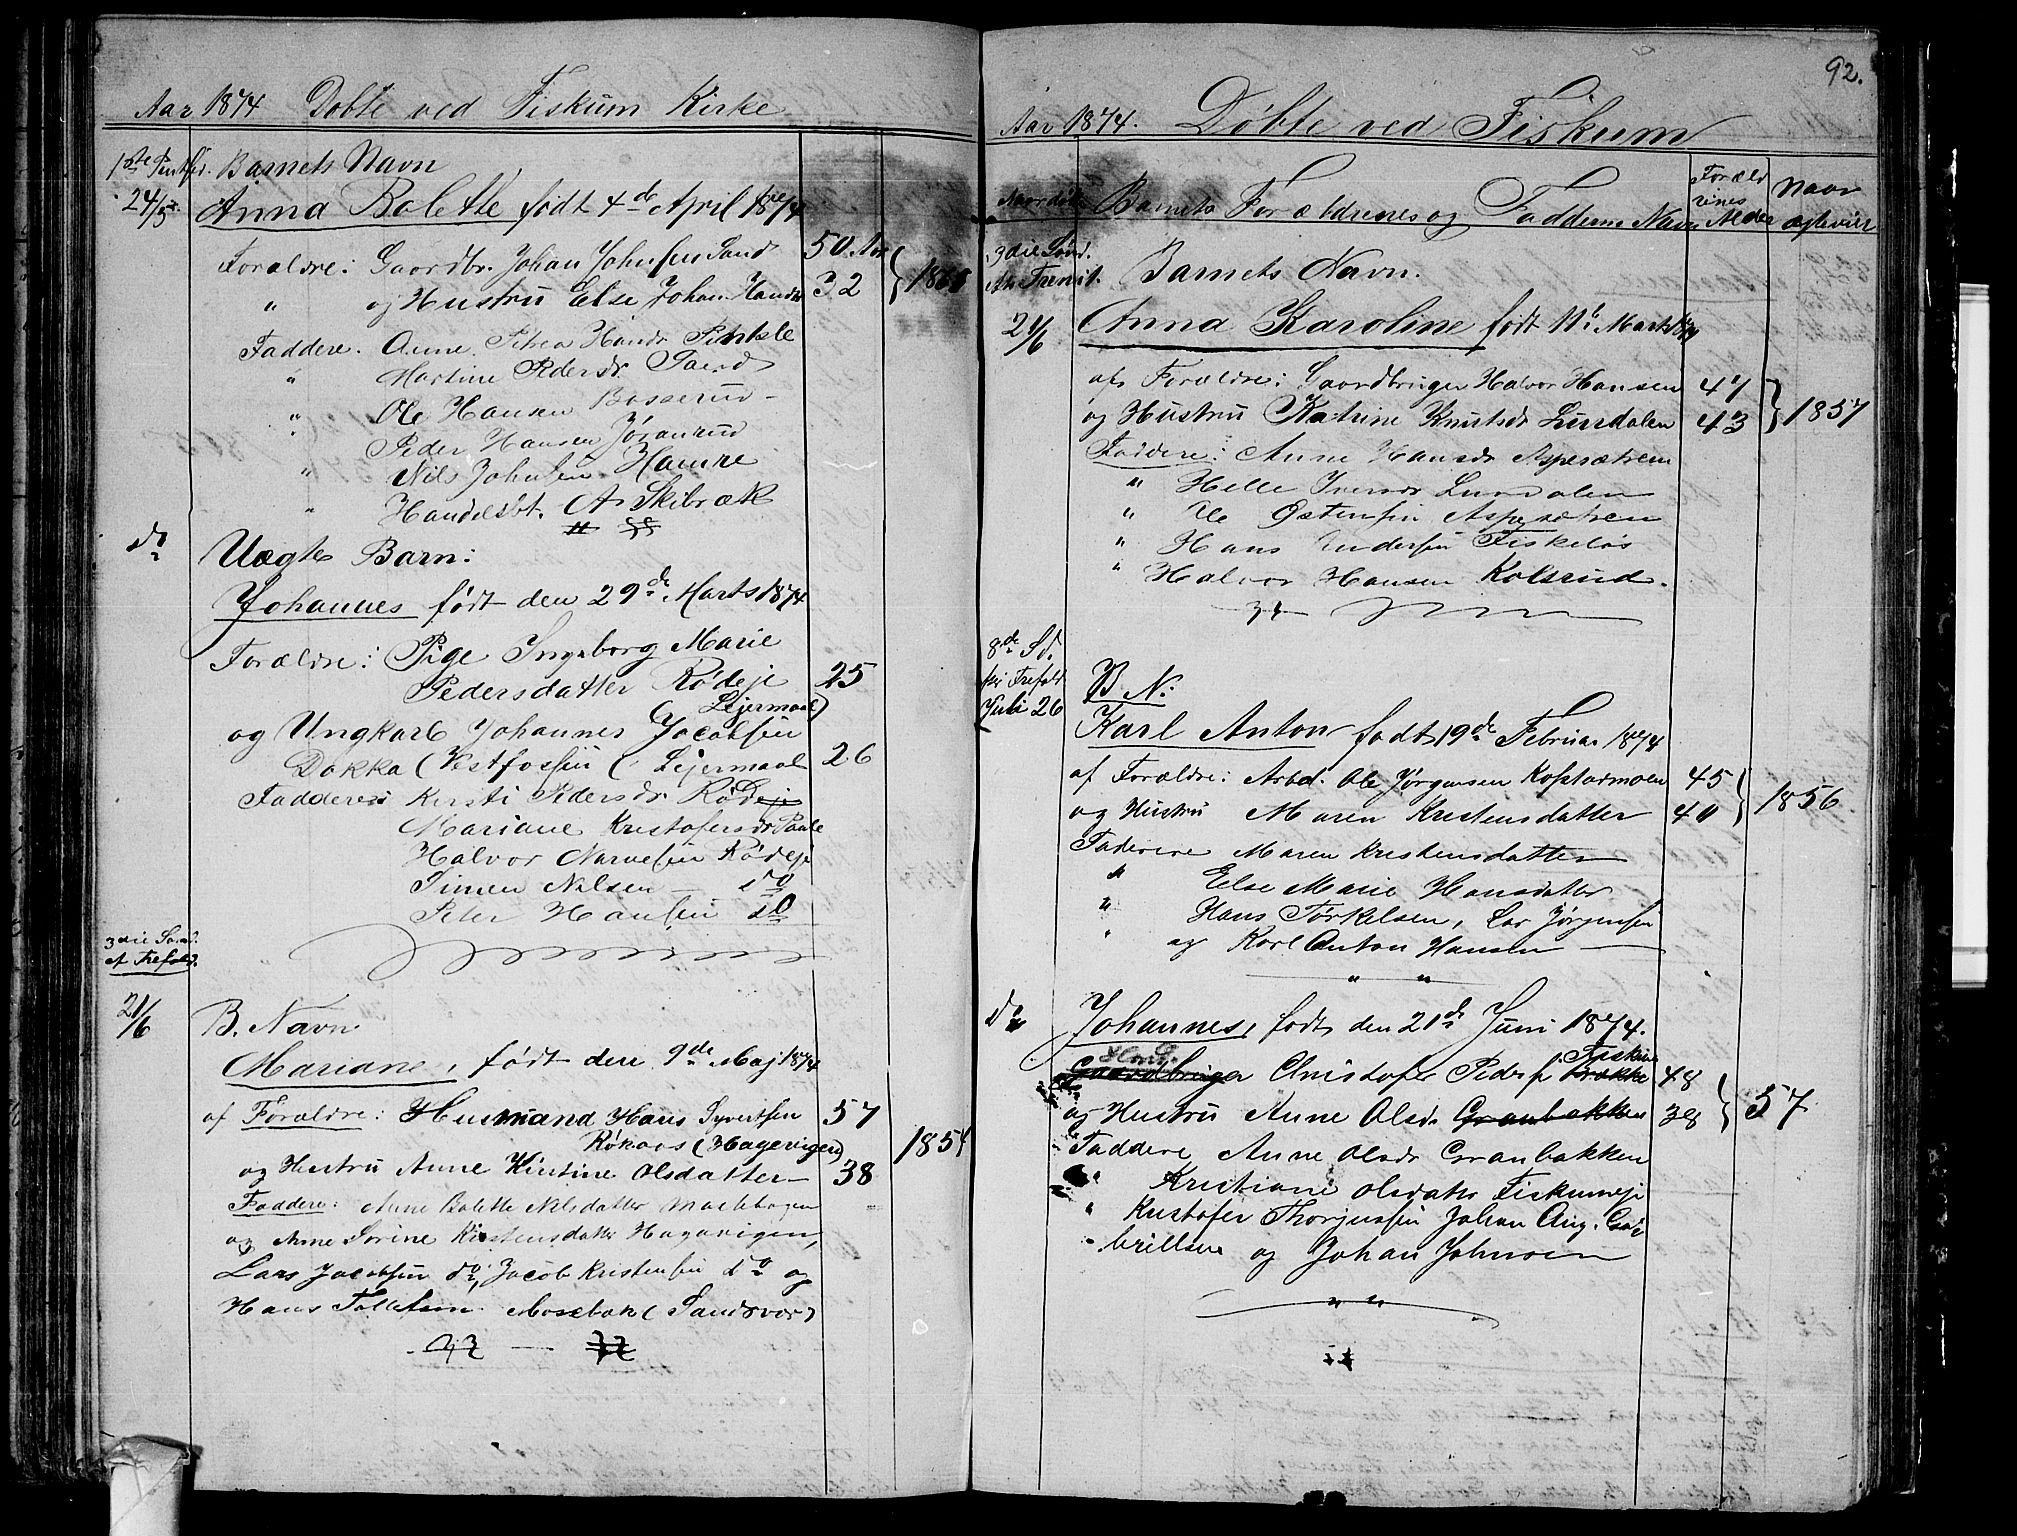 Aar 1874 Døbte ved Fiskum Kirke
Barnets Navn
24/5 Anna Bolette født 4de April 1874
Forældre: Gaardbr. Johan Johnsen Sand 50 Aar
" og Hustru Else Johan Handr 32
Faddere. Anne Petrea Handr
" Martine Pedersdr Sand
" Ole Hansen Bosserud
Peder Hansen
" Nils Johnsen Hamre
" Handelsbt. A. Skibræk
do Uægte Barn:
Johannes født den 29de Marts 1874
Forældre: Pige Ingeborg Marie
Pedersdatter Rödeje 25
(Lejermaal)
og Ungkarl Johannes Jacobsen
Dokka (Vestfossen ( Lejermaal 26
Faddere: Kersti Pedersdr Rödeje
Mariane Kristofersdr
Halvor Narvesen Rödeje
Simen Nilsen — do
Peter Hansen do
3die Sönd.
ef Trefold.
21/6 B. Navn
Mariane, født den 9de Maj 1874
af Forældre: Husmand Hans Syvertsen 57
Røkaas (Hagevigen)
og Hustru Anne Kirstine Olsdatter 38
Faddere: Anne Bolette Nilsdatter
og Anne Sorine Kirstensdatter Hagavigen,
Lars Jacobsen do, Jacob Kristensen do og
Hans Tollefsen Mosebak (Sandsvær)
92.
Aar 1874. Döbte ved Fiskum
Barnets Forældrenes og Faddernes Navn
Foræld
rines
Alder
Naar
ægteviet
3die Sönd.
Barnets Navn.
21/6 Anna Karoline født 11te Marts 1874
af Forældre: Gaardbruger Halvor Hansen 47
og Hustru Katrine Knutsdr Lurdalen 43 } 1857
Faddere: Anne Hansdr Aspesætren
" Helle Iversdr Lurdalen
" Ole Østensen Aspesætren
" Hans Andersen Fiskelös
" Halvor Hansen Kolsrud.
8de Sd.
Juli 26
B N:
Karl Anton født 19de Februar 1874
af Forældre: Arbd. Ole Jørgensen 45
og Hustru Maren Kristensdatter 40 } 1856
Faddere Maren Kristensdatter
" Else Marie Hansdatter
" Hans Torkelsen, Lars Jørgensen
" og Karl Anton Hansen
" "
do Johannes, født den 21de Juni 1874.
Gaardbruger Christofer Peders. Brække 48
og Hustru Anne Olsdr Granbakken 38 } 57
Faddere Anne Olsdr Granbakken
" Kristiane Olsdatter Fiskumeje
" Kristofer Thorjussen Johan Aug. Ga-
" brillsen og Johan Johnsen
" "